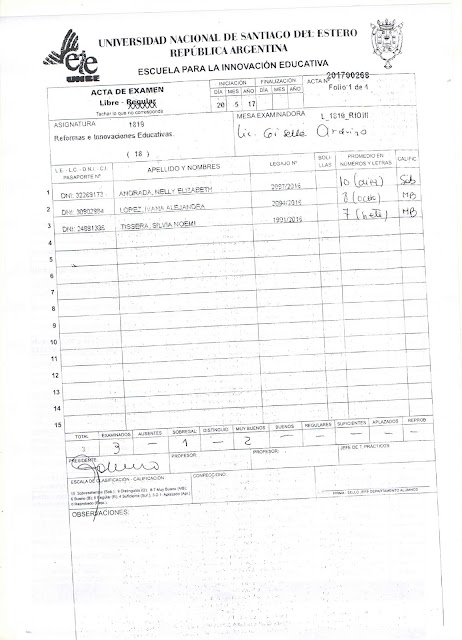 UNIVERSIDAD NACIONAL DE SANTIAGO DEL ESTERO
REPÚBLICA ARGENTINA
ESCUELA PARA LA INNOVACIÓN EDUCATIVA
eie
UNSE
ACTA DE EXAMEN
Libre - Regular
Tachar lo que no corresponda
INICIACIÓN
DÍA MES AÑO
20 5 17
FINALIZACIÓN
DÍA MES AÑO
ACTA Nº 201700268
Folio 1 de 1
ASIGNATURA 1819
Reformas e Innovaciones Educativas.
( 18 )
MESA EXAMINADORA L_1819_RIOIII
Lic. Giselle
L.E. - L.C. - D.N.I. - C.I. PASAPORTE Nº
APELLIDO Y NOMBRES
LEGAJO Nº
BOLI-LLAS
PROMEDIO EN NÚMEROS Y LETRAS
CALIFIC.
1 DNI: ANDRADA, NELLY ELIZABETH 2097/2016 10 (diez) Sob
2 DNI: LOPEZ, IVANA ALEJANDRA 2094/2016 8 (ocho) MB
3 DNI: TISSERA, SILVIA NOEMÍ 1995/2016 7 (siete) MB
4
5
6
7
8
9
10
11
12
13
14
15
TOTAL EXAMINADOS AUSENTES SOBRESAL. DISTINGUID. MUY BUENOS BUENOS REGULARES SUFICIENTES APLAZADOS REPROB.
3 — 1 — 2 — — — — —
PRESIDENTE:
PROFESOR:
PROFESOR:
JEFE DE T. PRÁCTICOS
ESCALA DE CLASIFICACIÓN - CALIFICACIÓN
CONFECCIONÓ:
10 Sobresaliente (Sob.) 9 Distinguido (D) 8-7 Muy Bueno (MB)
6 Bueno (B) 5 Regular (R) 4 Suficiente (Suf.) 3-2-1 Aplazado (Apl.)
0 Reprobado (Rep.)
FIRMA - SELLO JEFE DEPARTAMENTO ALUMNOS
OBSERVACIONES: